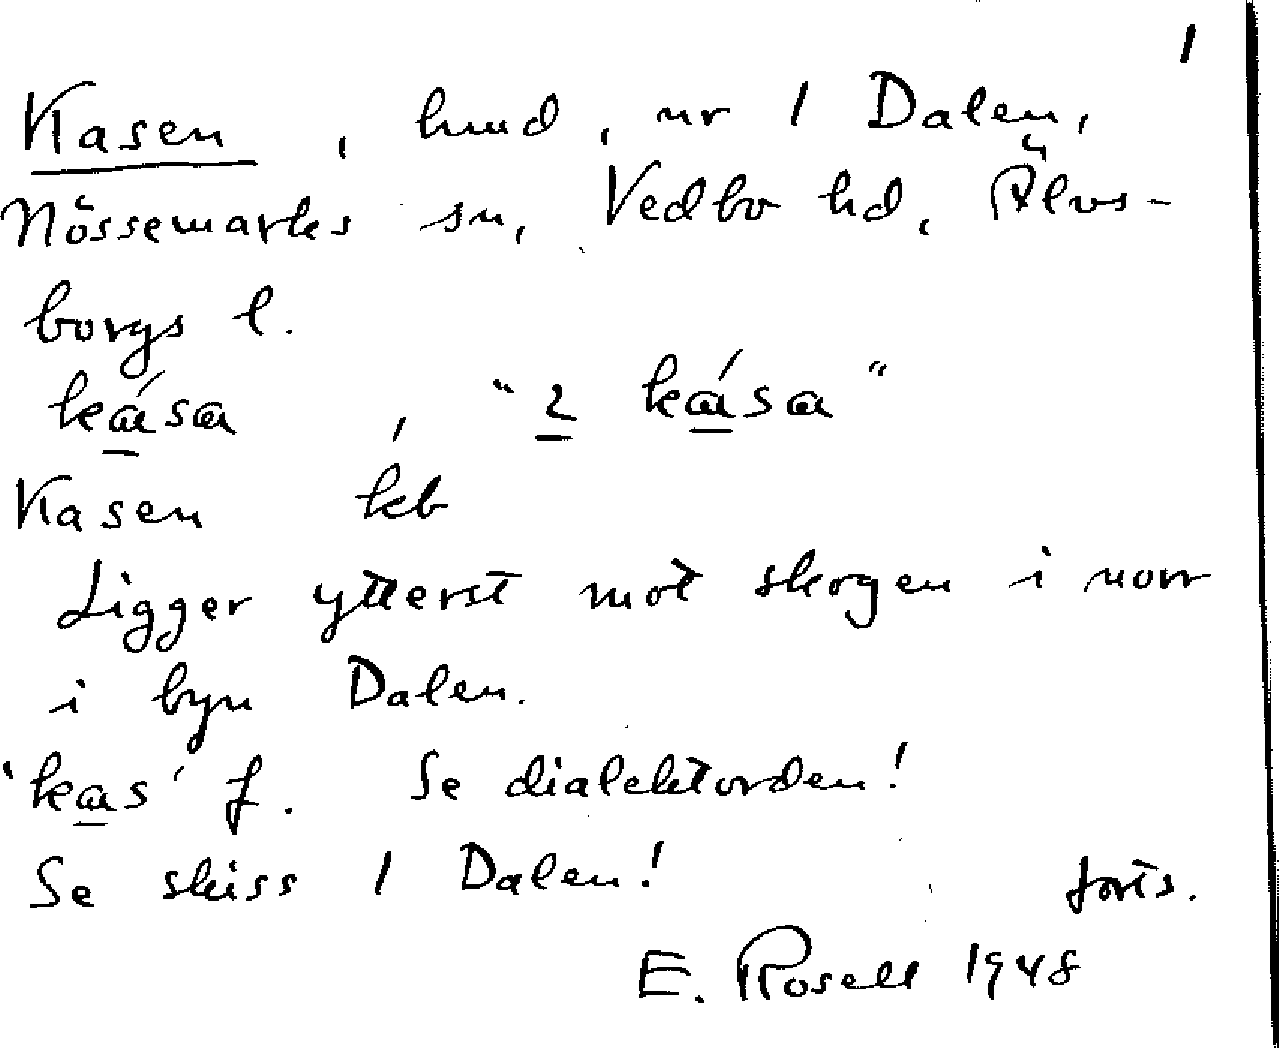 1
Kasen, hmd, nr 1 Dalen,
Nössemarks sn, Vedbo hd, Älvs-
borgs l.
kása, "2 kása"
Kasen kb
Ligger ytterst mot skogen i norr
i byn Dalen.
'kas' f. Se dialektorden!
Se skiss 1 Dalen! forts.
E. Rosell 1948